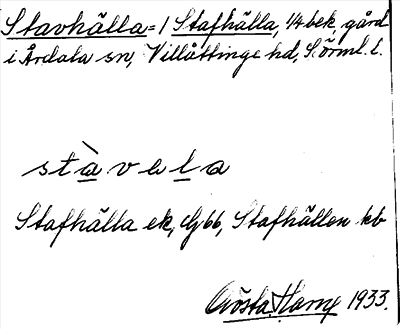 Stavhälla = 1 Stafhälla, 1/4 bek. gård
i Årdala sn, Villåttinge hd, S.örml. l.
stàvela
Stafhälla ek, Cg 66, Stafhällen kb
Gösta Harne 1933.